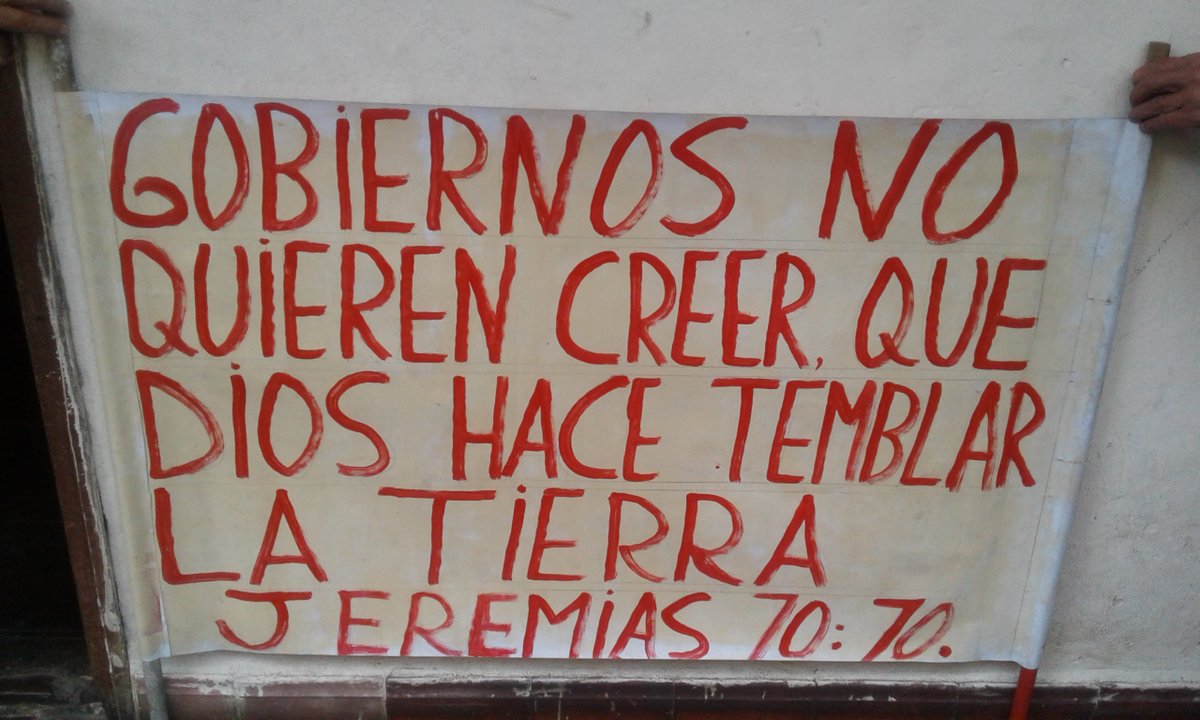 GOBiERNOS NO
QUiEREN CREER, QUE
DiOS HACE TEMBLAR
LA TiERRA
JEREMiAS 70: 70.